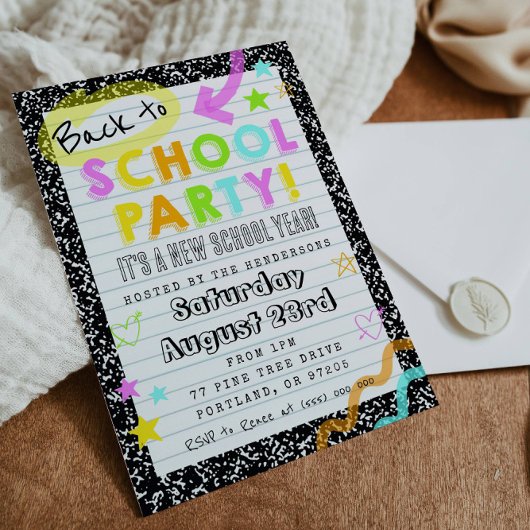 Back to
SCHOOL
PARTY!
IT'S A NEW SCHOOL YEAR!
HOSTED BY THE HENDERSONS
Saturday
August 23rd
FROM 1PM
77 PINE TREE DRIVE
PORTLAND, OR 97205
RSVP to Renee at (555) 000 000